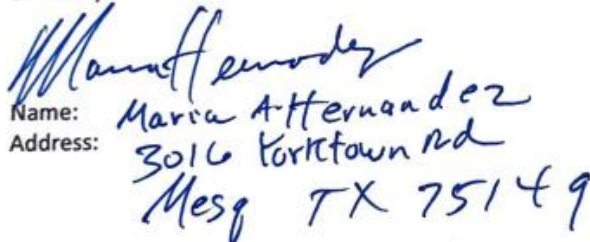 Maria Hernandez
Name: Maria A. Hernandez
Address: 3016 Yorktown Rd
Mesq TX 75149